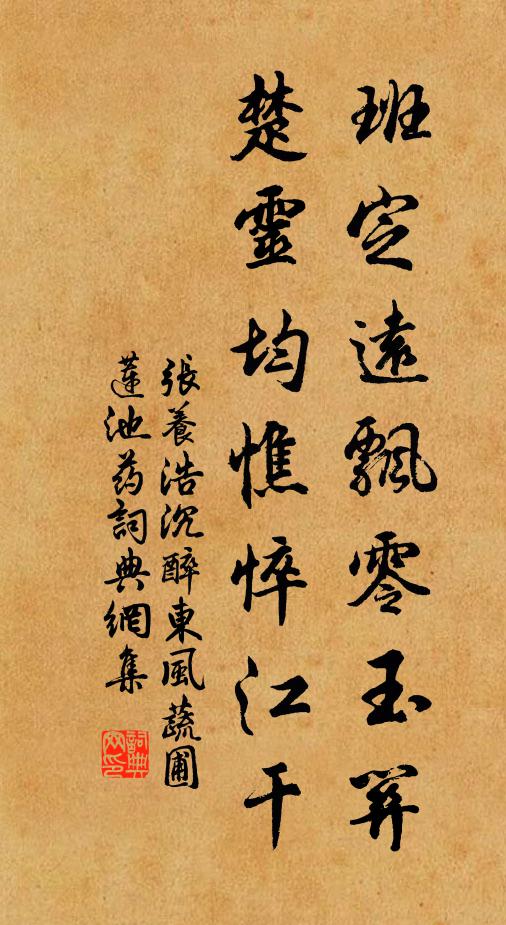 班定遠飄零玉關
楚靈均憔悴江干
張養浩沉醉東風蔬圃
蓮池葯詞典網集
詞典
网印